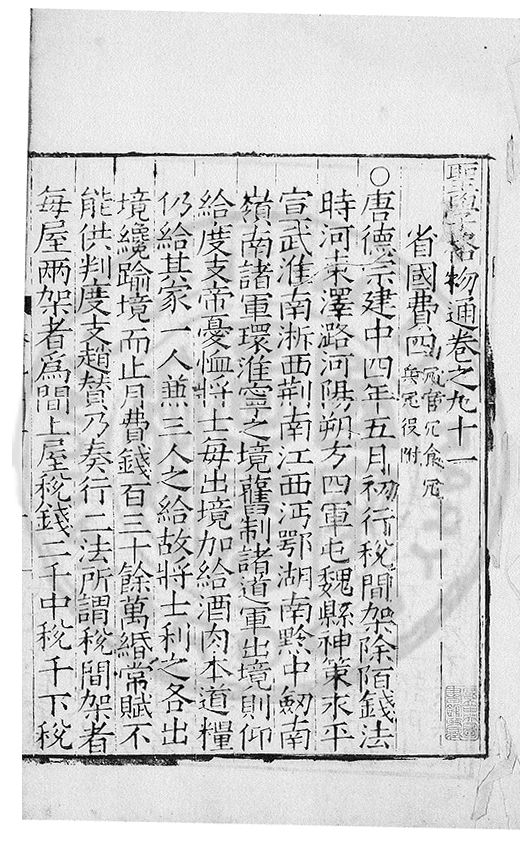 聖學格物通卷之九十一
省國費四 冗官冗食冗
兵冗役附
○唐德宗建中四年五月初行稅間架除陌錢法
時河東澤潞河陽朔方四軍屯魏縣神策永平
宣武淮南浙西荆南江西沔鄂湖南黔中劒南
嶺南諸軍環淮寧之境舊制諸道軍出境則仰
給度支帝憂恤將士每出境加給酒肉本道糧
仍給其家一人兼三人之給故將士利之各出
境纔踰境而止月費錢百三十餘萬緡常賦不
能供判度支趙賛乃奏行二法所謂稅間架者
每屋兩架者爲間上屋稅錢二千中稅千下稅